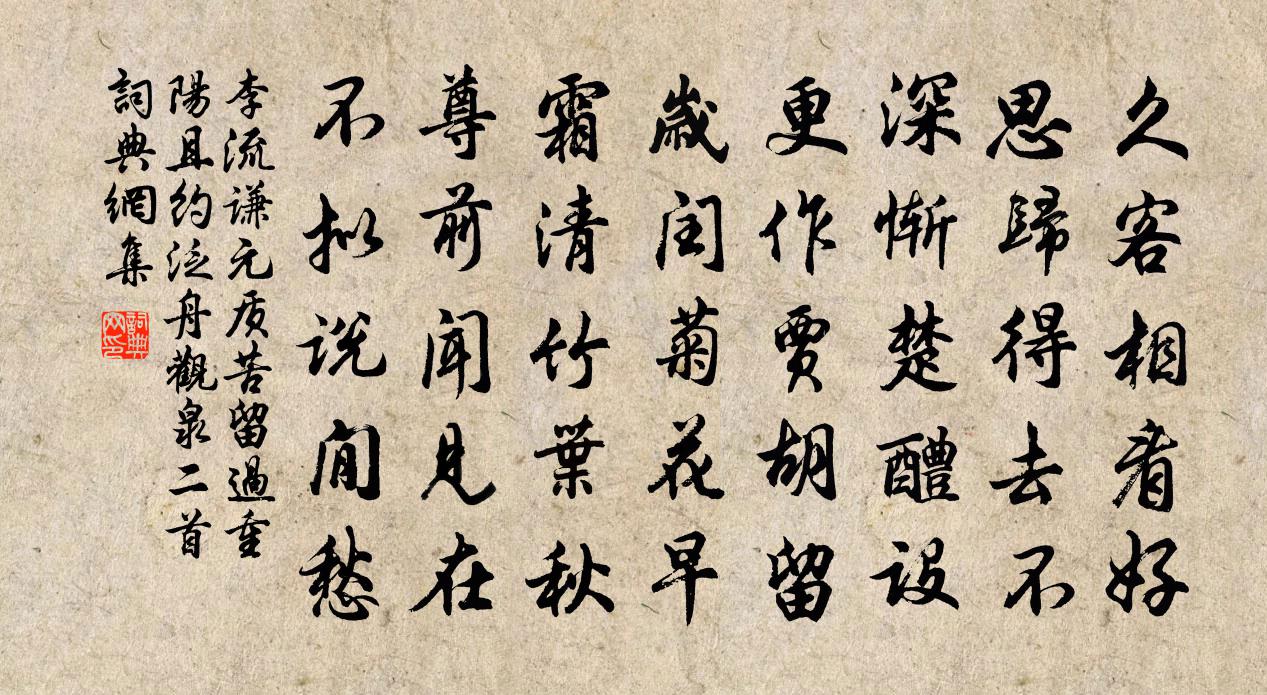 久客相看好
思歸得去不
深慚楚醴設
更作賈胡留
歲閏菊花早
霜清竹葉秋
尊前聞見在
不擬說閒愁
李流謙元质苦留過重
陽且約泛舟觀泉二首
詞典網集
詞典网印